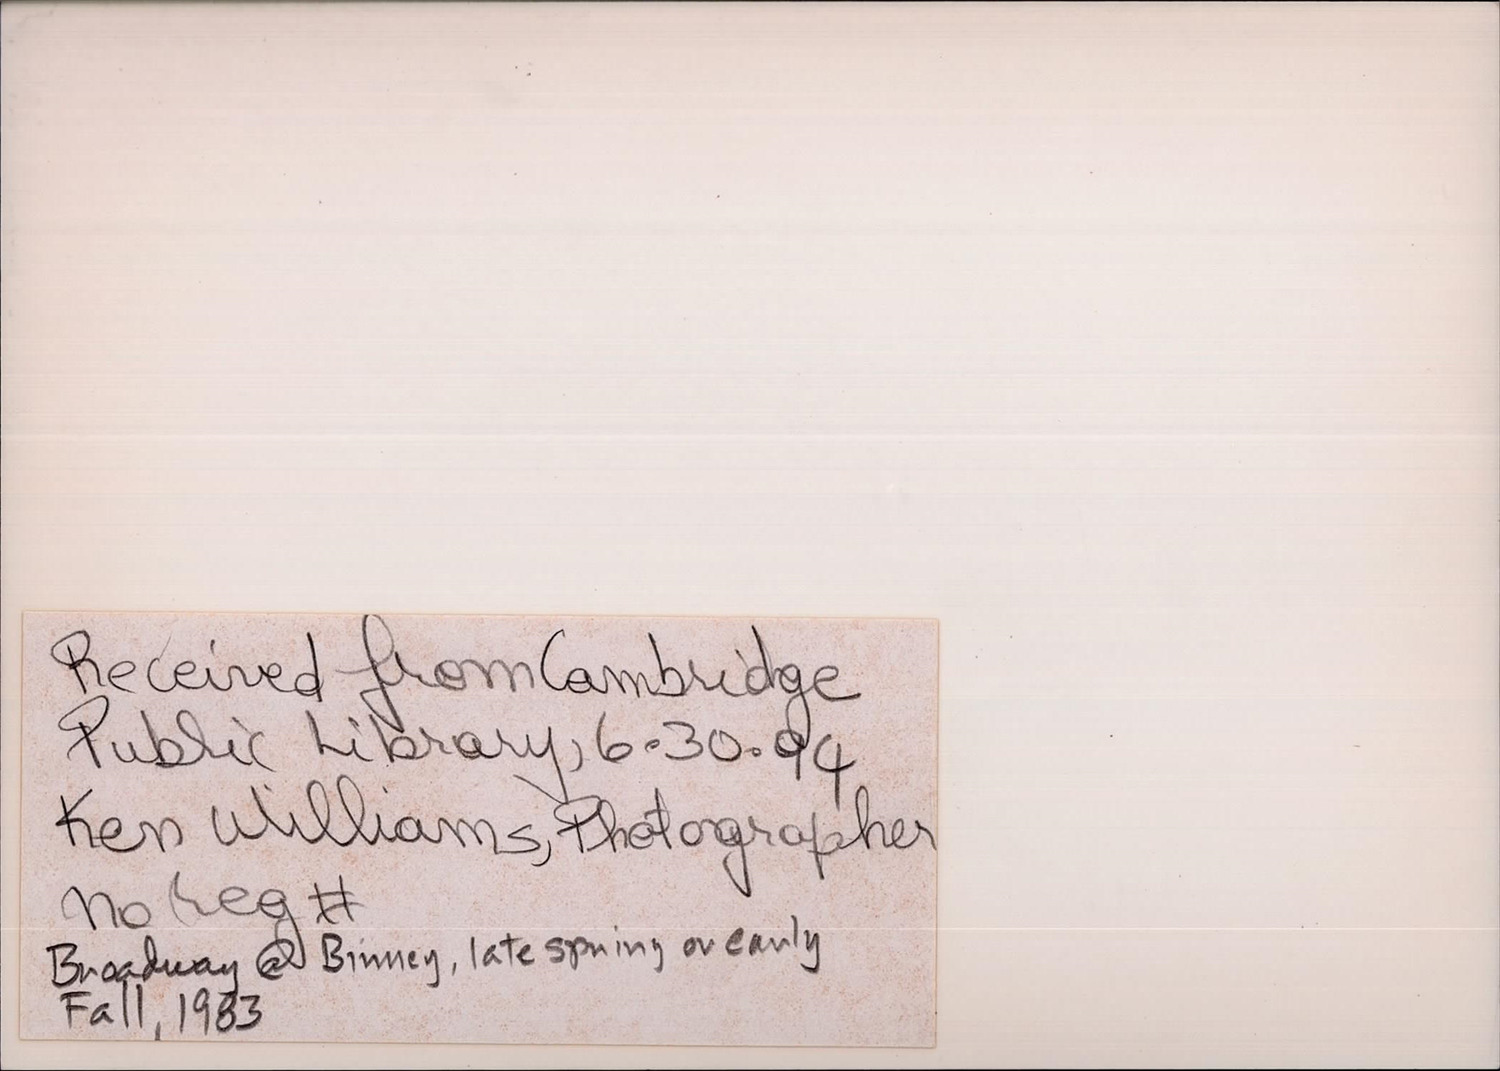 Received from Cambridge
Public Library, 6-30-94
Ken Williams, Photographer
no reg #
Broadway @ Binney, late spring or early
Fall, 1983